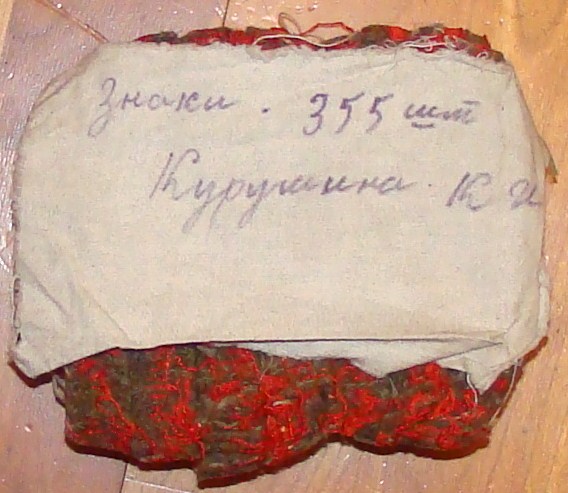 Знаки. 355 шт
Курушина К И